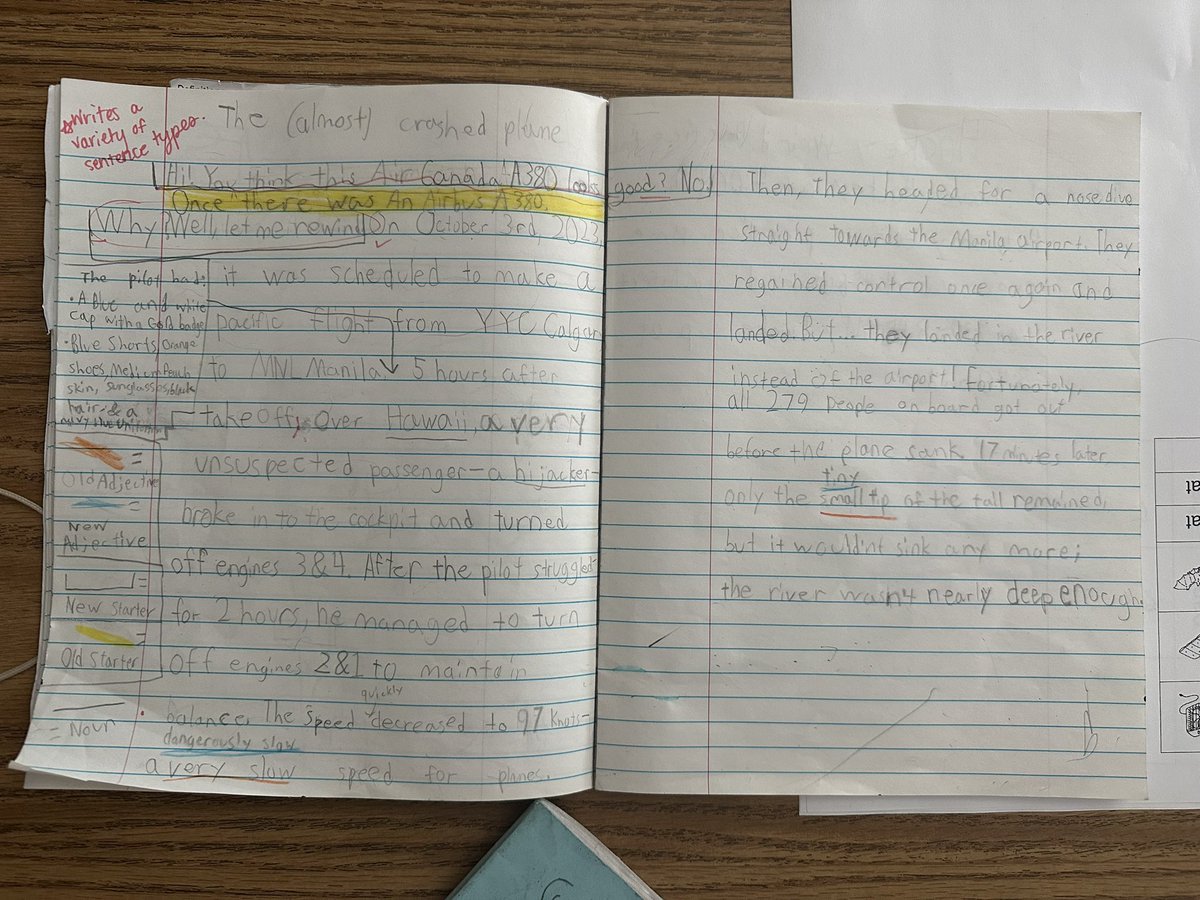 Writes a
variety of
sentence types.
The (almost) crashed plane
Hi! You think this Air Canada A380 looks good? No!
Once there was An Airbus A380.
Why? Well, let me rewind On October 3rd, 2023,
it was scheduled to make a
pacific flight from YYC Calgary
to MNL Manila. 5 hours after
takeoff, over Hawaii, a very
unsuspected passenger-a hijacker-
broke in to the cockpit and turned
off engines 3&4. After the pilot struggled
for 2 hours, he managed to turn
off engines 2&1 to maintain
quickly
balance. The speed decreased to 97 Knots-
dangerously slow
a very slow speed for planes.
The pilot had:
• A Blue and white
cap with a Gold badge
• Blue Shorts, Orange
shoes, Medium Peach
skin, sunglasses, black
hair & a
navy blue uniform
=
Old Adjective
=
New
Adjective
=
New Starter
=
Old Starter
= Noun
Then, they headed for a nosedive
straight towards the Manila airport. They
regained control once again and
landed. But... they landed in the river
instead of the airport! Fortunately,
all 279 people on board got out
before the plane sank. 17 minutes later,
tiny
only the small tip of the tail remained,
but it would'nt sink any more;
the river wasn't nearly deep enough.
at
at